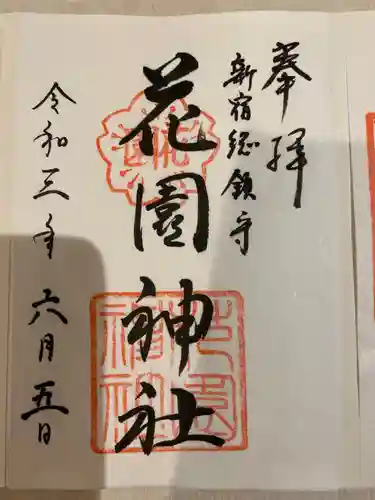 奉拝
新宿総鎮守
花園神社
令和三年六月五日